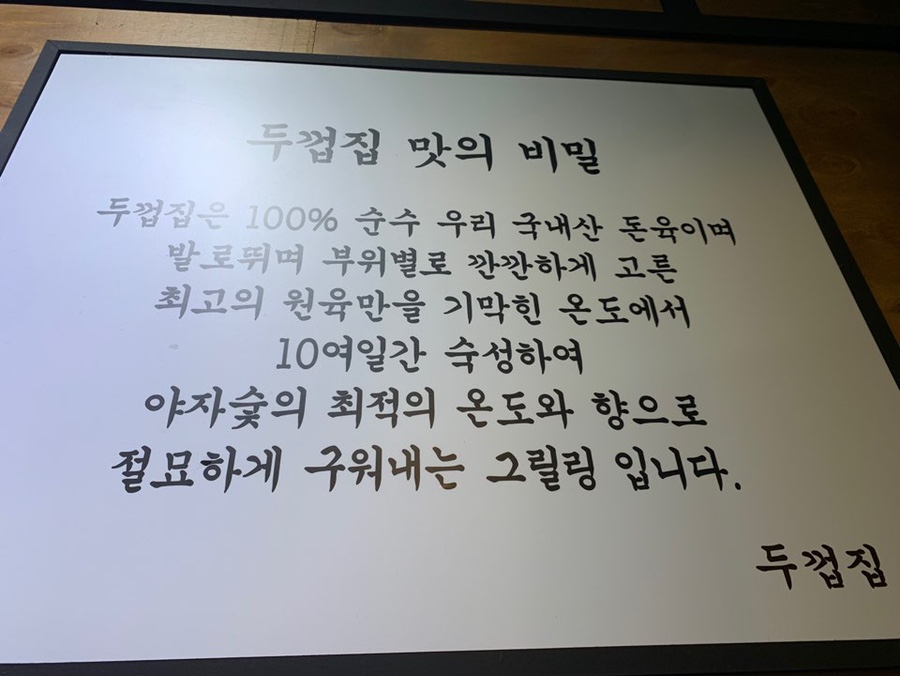 두껍집 맛의 비밀
두껍집은 100% 순수 우리 국내산 돈육이며
발로뛰며 부위별로 깐깐하게 고른
최고의 원육만을 기막힌 온도에서
10여일간 숙성하여
야자숯의 최적의 온도와 향으로
절묘하게 구워내는 그릴링 입니다.
두껍집